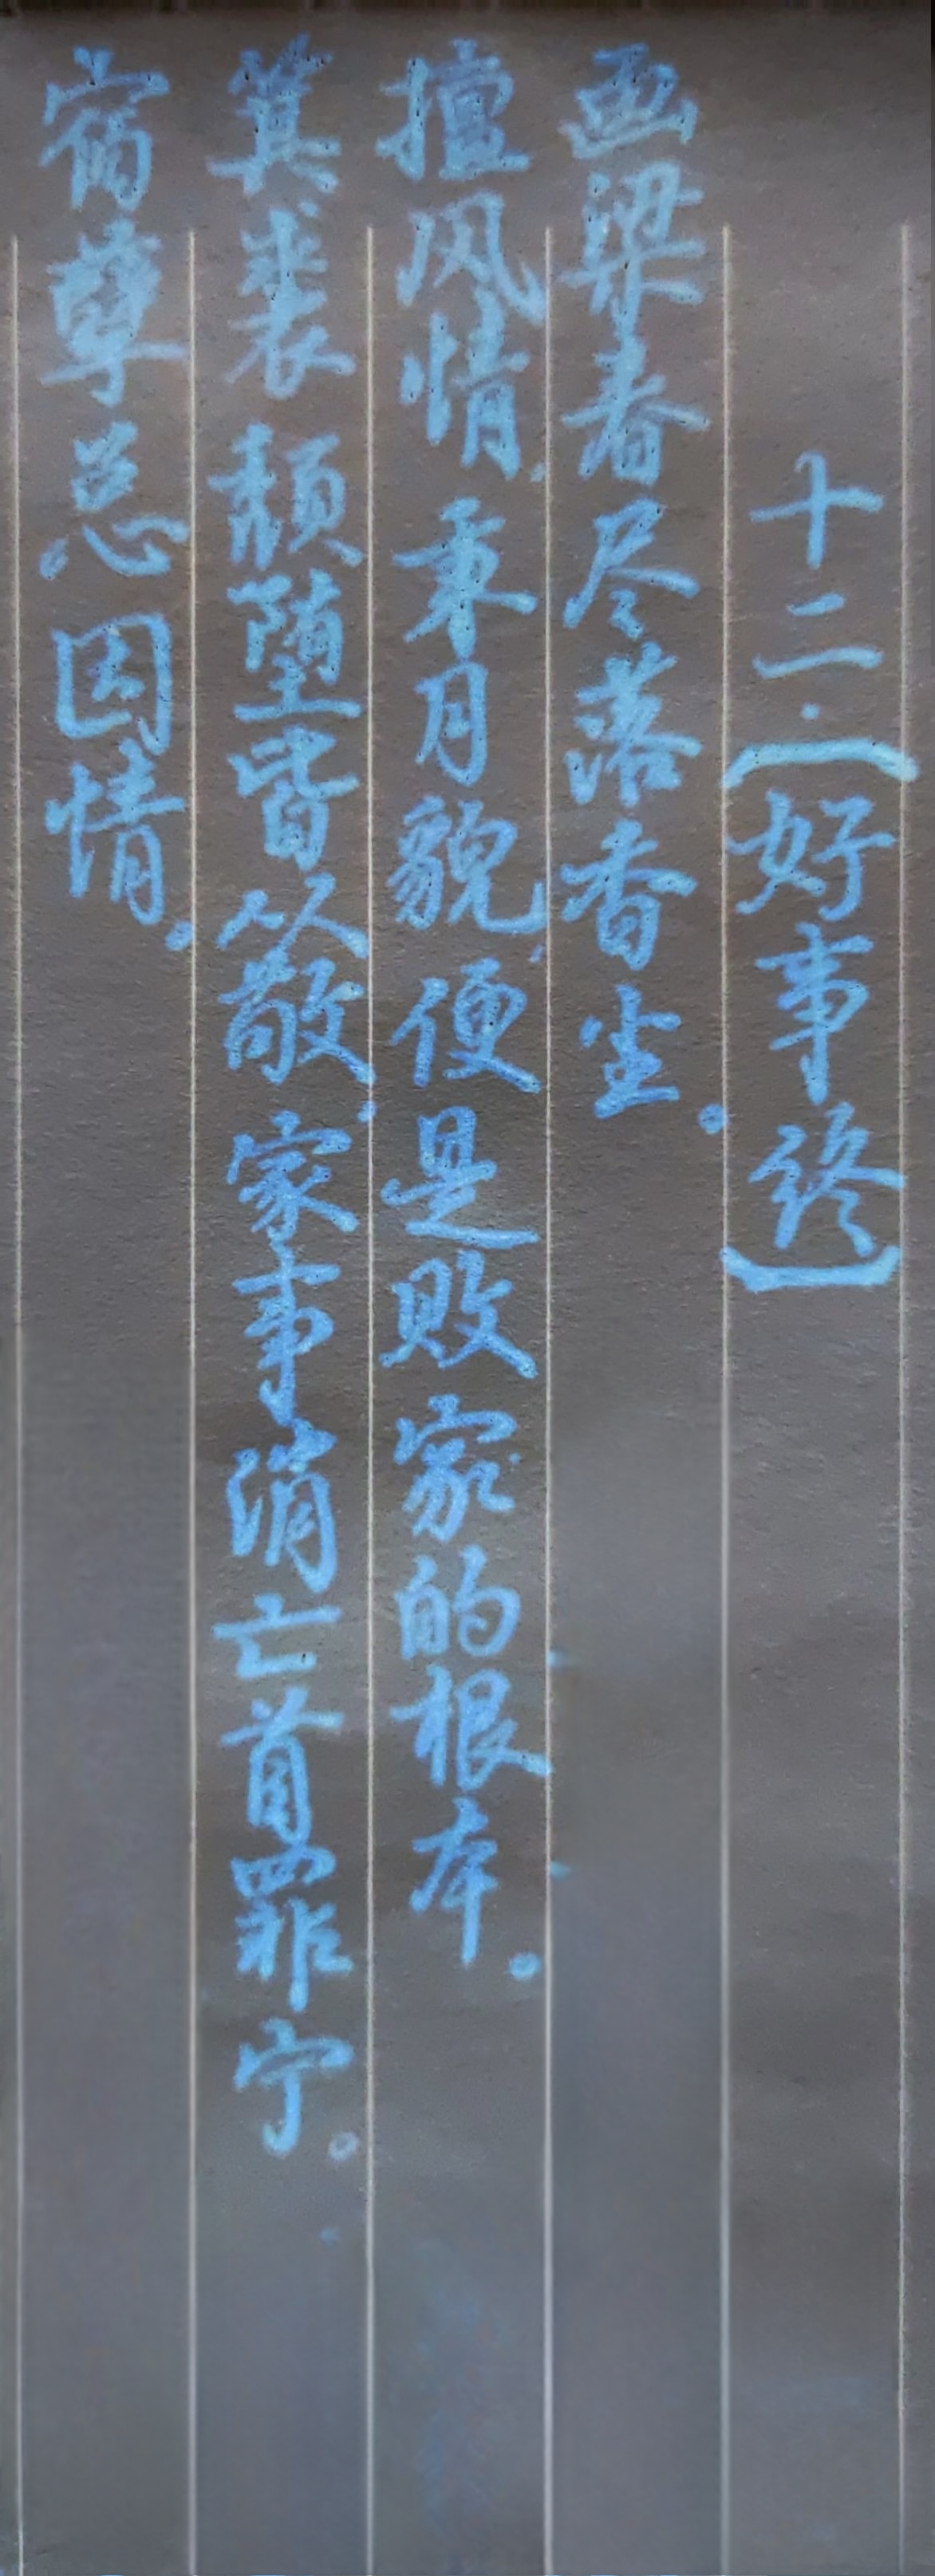 十二·〔好事终〕
画梁春尽落香尘。
擅风情，秉月貌，便是败家的根本。
箕裘颓堕皆从敬，家事消亡首罪宁。
宿孽总因情。